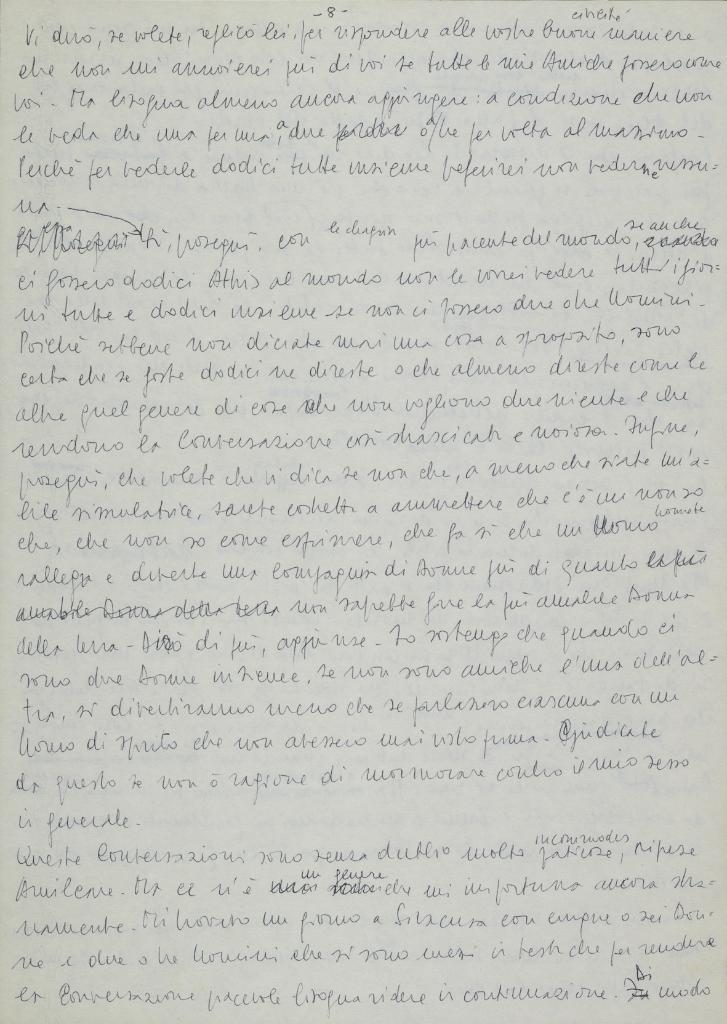 - 8 -
civiltà
Vi dirò, se volete, replicò lei, per rispondere alle vostre buone maniere
che non mi annoierei più di voi se tutte le mie Amiche fossero come
voi. Ma bisogna almeno ancora aggiungere: a condizione che non
le veda che una per una, a due o a tre per volta al massimo.
Perchè per vederle dodici tutte insieme preferirei non vederne nessu=
na.
Sì, proseguì, con le chagrin più piacente del mondo, se anche
ci fossero dodici Athis al mondo non le vorrei vedere tutti i gior=
ni tutte e dodici insieme se non ci fossero due o tre Uomini.
Poichè sebbene non diciate mai una cosa a sproposito, sono
certa che se foste dodici ne direste o che almeno direste come le
altre quel genere di cose che non vogliono dire niente e che
rendono la Conversazione così strascicata e noiosa. Infine,
proseguì, che volete che vi dica se non che, a meno che siate un'a=
bile simulatrice, sarete costretta a ammettere che c'è un non so
che, che non so come esprimere, che fa sì che un Uomo honnete
rallegra e diverte una Compagnia di Donne più di quanto la più
amabile Donna della terra non saprebbe fare la più amabile Donna
della terra. Dirò di più, aggiunse. Io sostengo che quando ci
sono due Donne insieme, se non sono amiche l'una dell'al=
tra, si divertiranno meno che se parlassero ciascuna con un
Uomo di spirito che non avessero mai visto prima. Giudicate
da questo se non ò ragione di mormorare contro il mio sesso
in generale.
Queste Conversazioni sono senza dubbio molto faticose, incommodes riprese
Amilcare. Ma ce n'è un genere che mi importuna ancora stra=
namente. Mi trovavo un giorno a Siracusa con cinque o sei Don=
ne e due o tre Uomini che si sono messi in testa che per rendere
la Conversazione piacevole bisogna ridere in continuazione. Di modo